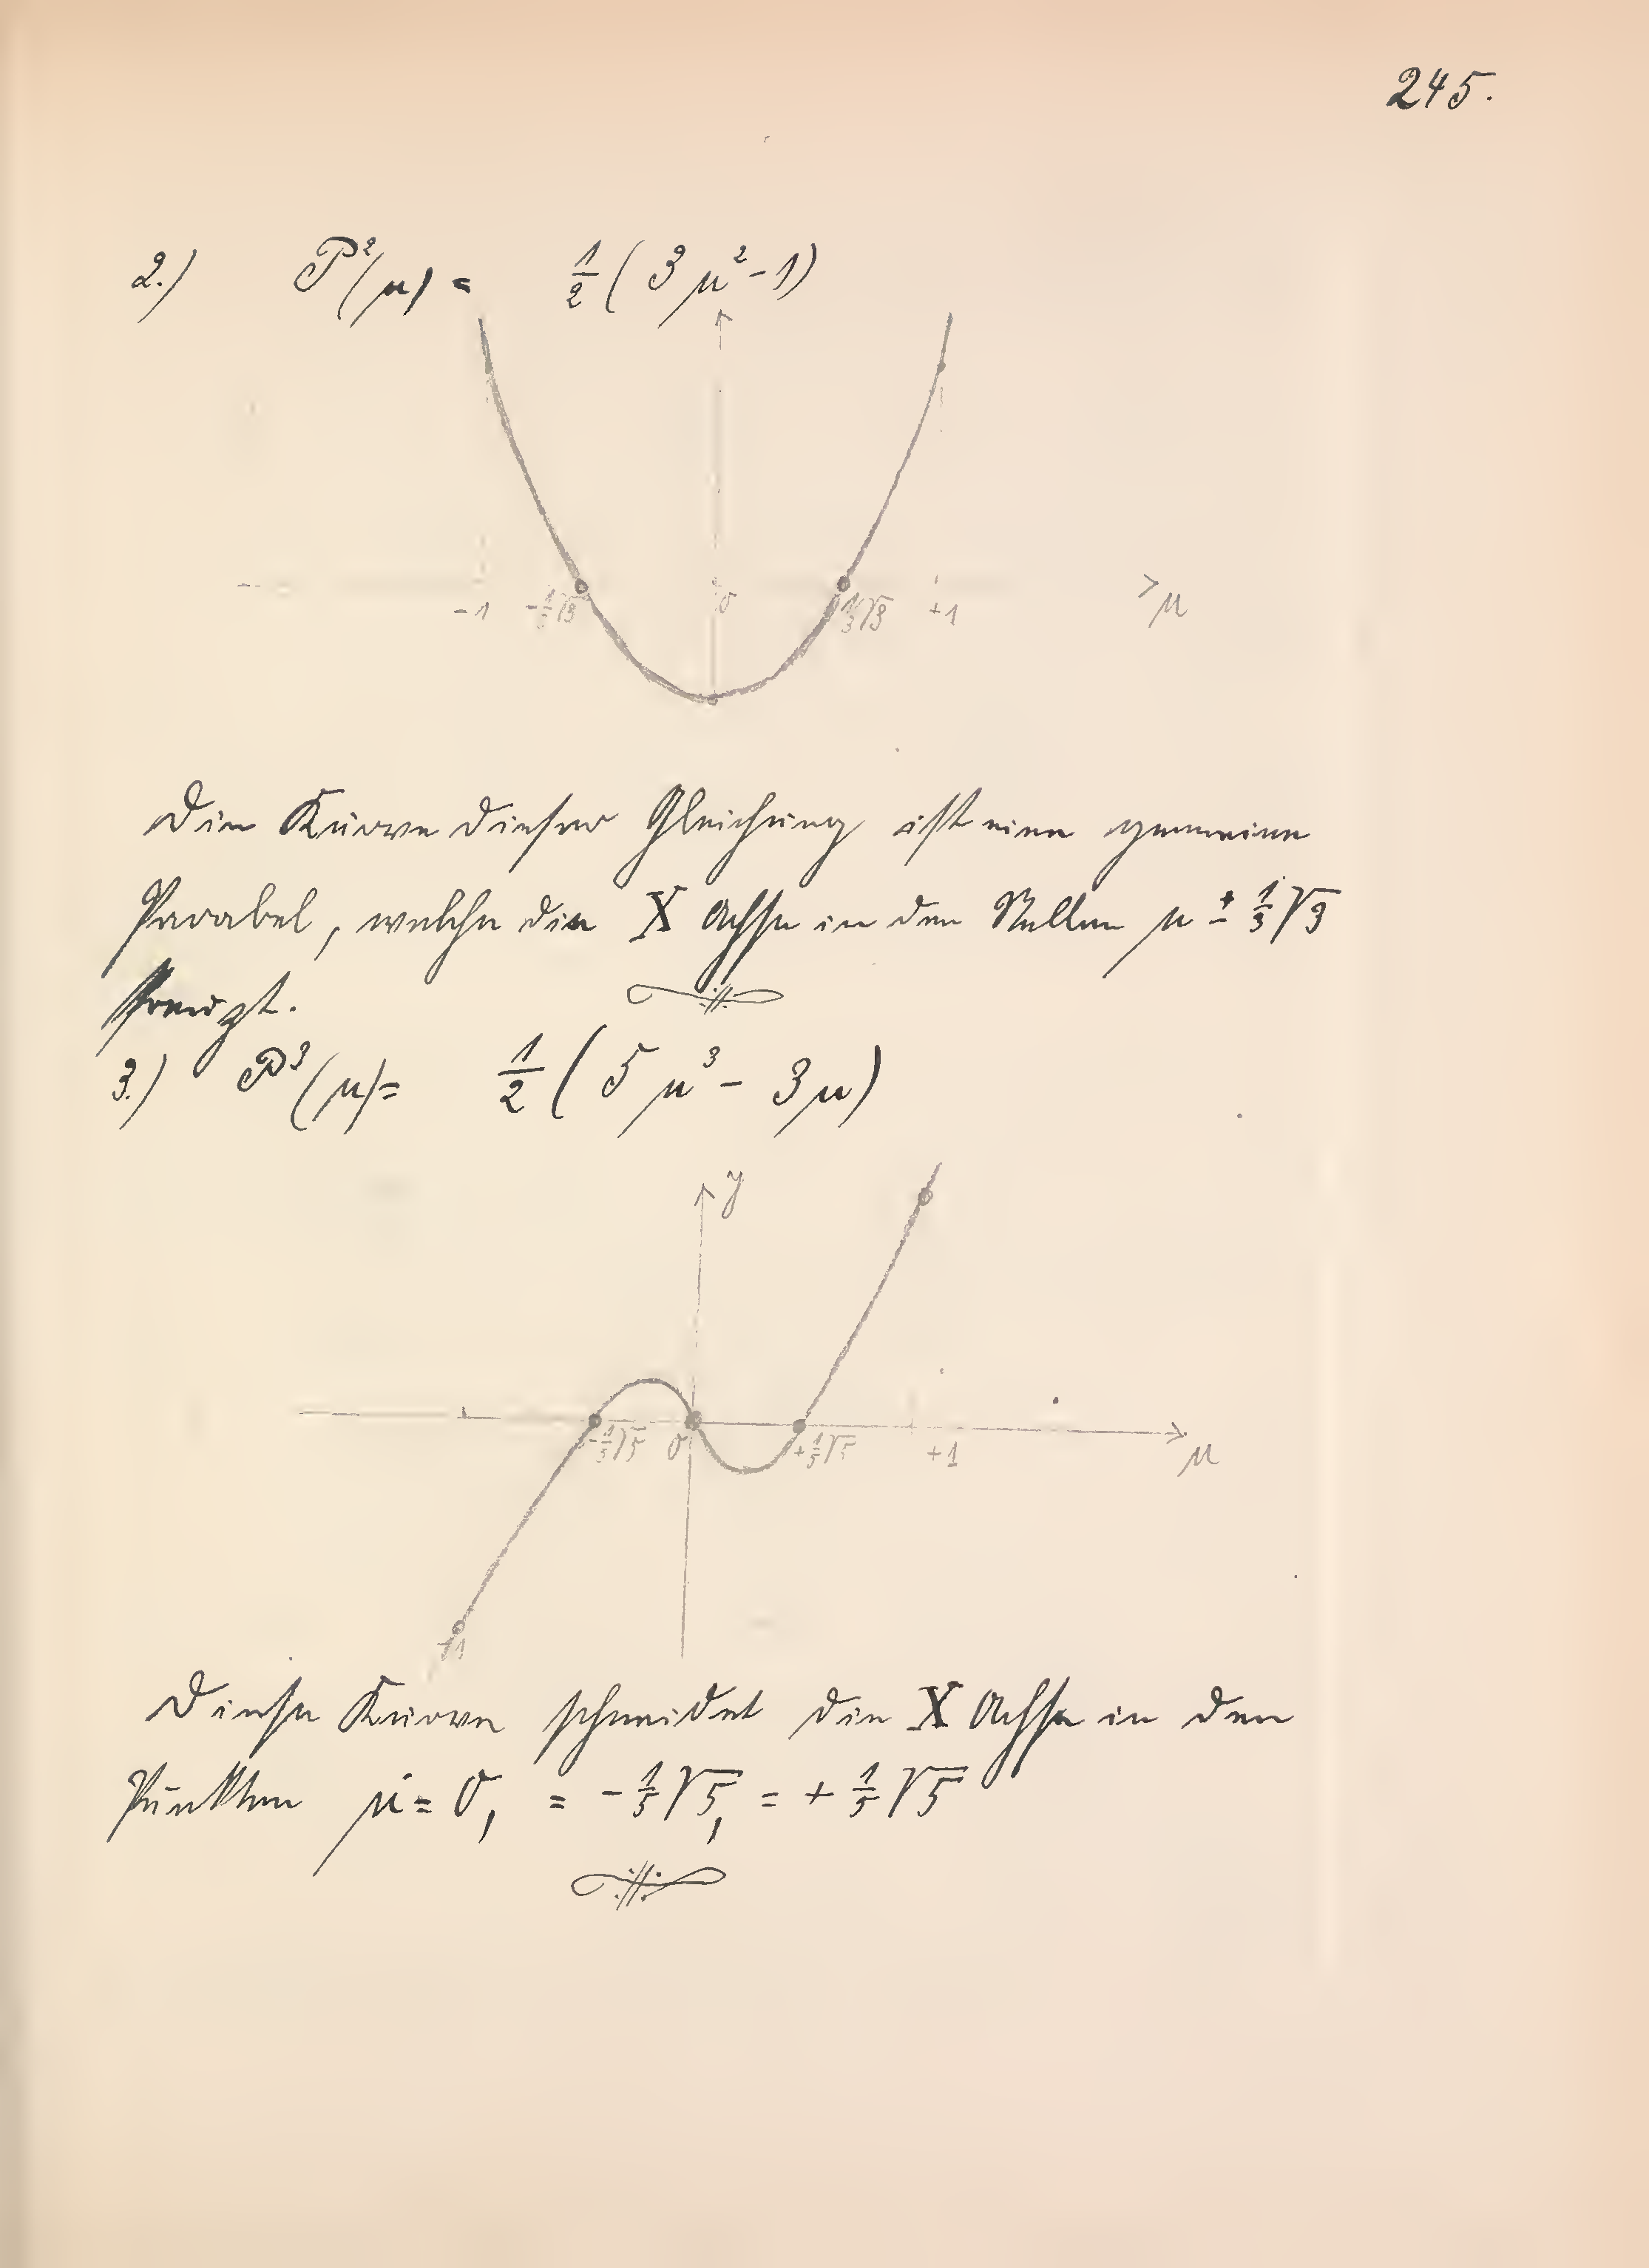 245.
2.) P²(μ) = ½ (3μ²-1)
-1 -⅓√3 0 ⅓√3 +1 μ
Die Kurve dieser Gleichung ist eine gemeine
Parabel, welche die X Achse in den Stellen μ ± ⅓√3
kreuzt.
3.) P³(μ) = ½ (5μ³ - 3μ)
y
-⅕√5 0 +⅕√5 +1 μ
-1
Diese Kurve schneidet die X Achse in den
Punkten μ = 0, = -⅕√5, = +⅕√5